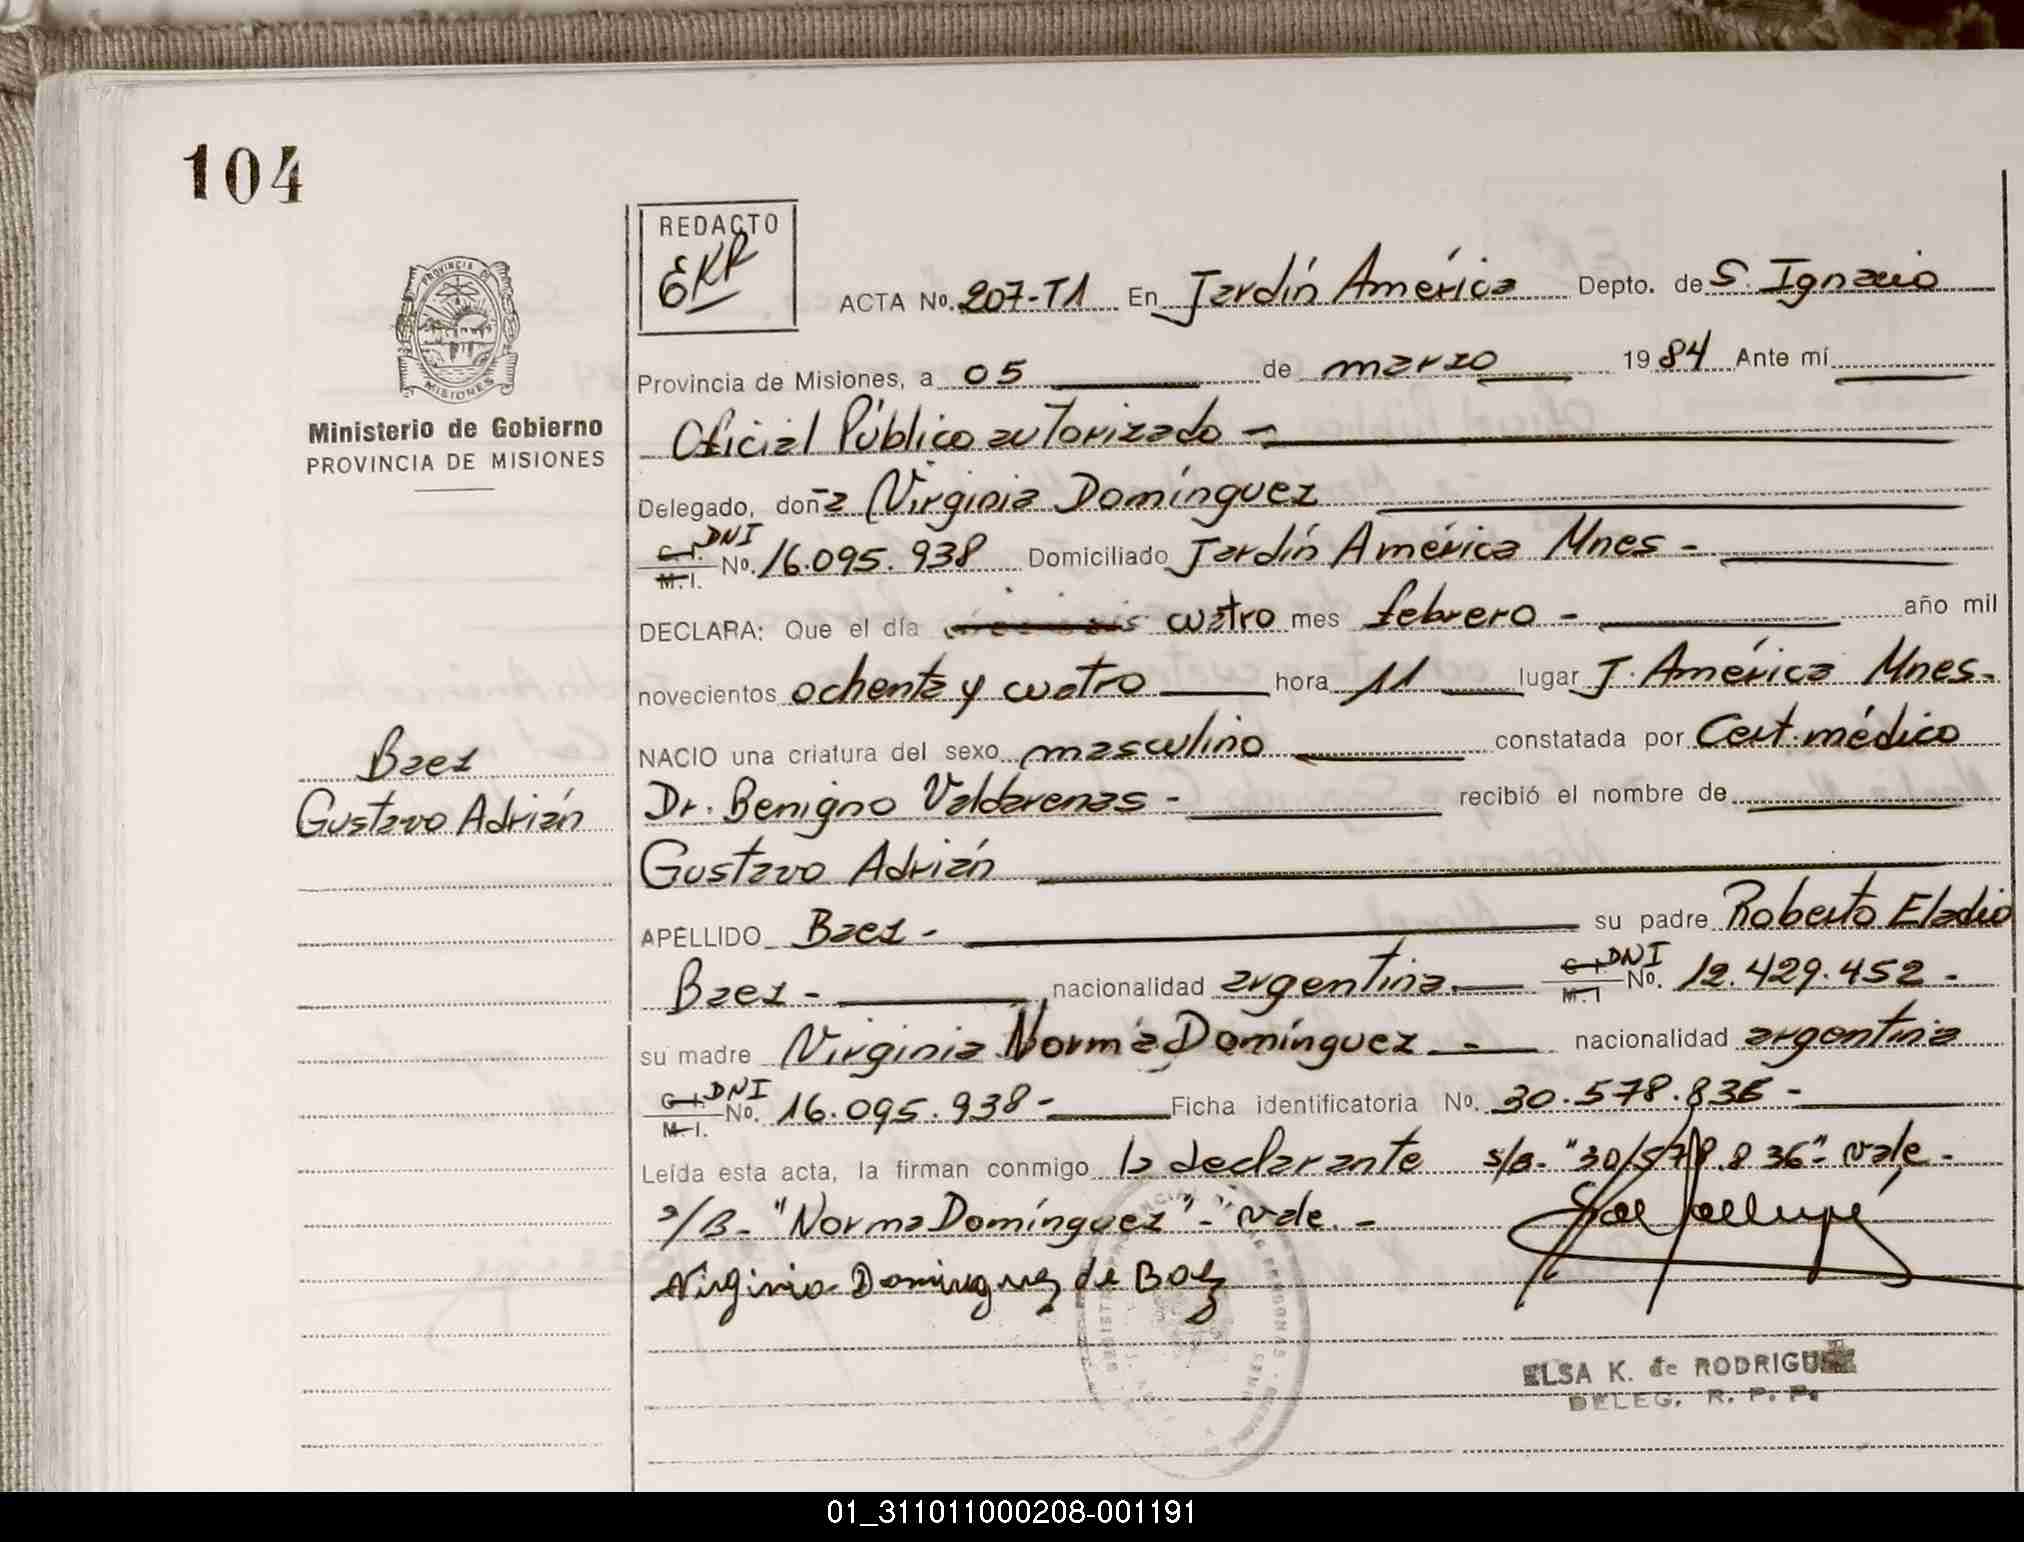 104
REDACTO
EKR
PROVINCIA DE
MISIONES
Ministerio de Gobierno
PROVINCIA DE MISIONES
ACTA No. 207-T1 En Jardín América Depto. de S. Ignacio
Provincia de Misiones, a 05 de marzo 1984 Ante mí
Oficial Público autorizado -
Delegado, doña Virginia Domínguez
C.I. DNI
M.I. No. 16.095.938 Domiciliado Jardín América Mnes -
DECLARA: Que el día cuatro mes febrero - año mil
novecientos ochenta y cuatro hora 11 lugar J. América Mnes.
NACIO una criatura del sexo masculino constatada por Cert. médico
Baez
Dr. Benigno Valdarenas - recibió el nombre de
Gustavo Adrián
Gustavo Adrián
APELLIDO Baez - su padre Roberto Eladio
Baez - nacionalidad argentina C.I. DNI
M.I No. 12.429.452 -
su madre Virginia Norma Domínguez - nacionalidad argentina
C.I. DNI
M.I. No. 16.095.938 - Ficha identificatoria No. 30.578.836 -
Leída esta acta, la firman conmigo la declarante s/B. "30/578.836" vale -
s/B - "Norma Domínguez" - vale. -
Virginia Dominguez de Baez
ELSA K. de RODRIGUEZ
DELEG. R. P. P.
01_311011000208-001191